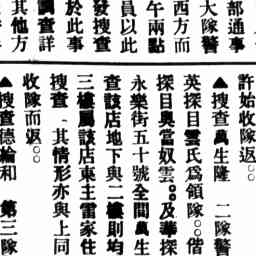 部通事
大隊警
西方而
午兩點
員以此
發搜查
於此事
調查詳
其他方
許始收隊返。。
▲搜查萬生隆　二隊警
英探目雲氏爲領隊。。偕
探目奧當奴雲。。及華探
永樂街五十號全間萬生
查該店地下與二樓則均
三樓屬該店東主雷家住
搜查、其情形亦與上同
收隊而返。。
▲搜查德綸和　第三隊